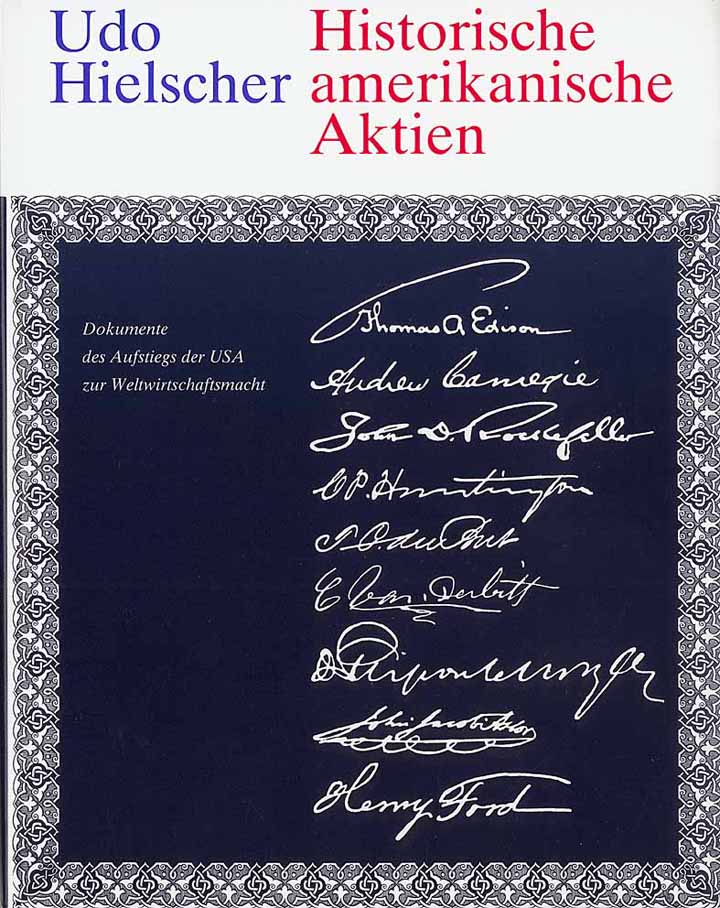 Udo
Hielscher
Historische
amerikanische
Aktien
Dokumente
des Aufstiegs der USA
zur Weltwirtschaftsmacht
Thomas A Edison
Andrew Carnegie
John D. Rockefeller
C.P. Huntington
T. C. du Pont
C Van Derbilt
John Jacob Astor
Henry Ford